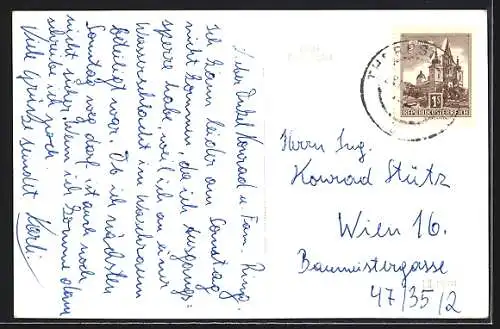 Lieber Onkel Konrad u. Fam. Ring.
Ich kann leider am Samstag
nicht kommen, da ich Ausgangs-
sperre habe, weil ich an einer
Wasserschlacht im Waschraum
beteiligt war. Ob ich nächsten
Sonntag weg darf ist auch noch
nicht sicher. Wenn ich komme dann
schreibe ich noch.
Viele Grüsse sendet Karli
REPUBLIK ÖSTERREICH
Herrn Ing.
Konrad Stütz
Wien 16.
Baumeistergasse
47/35/2